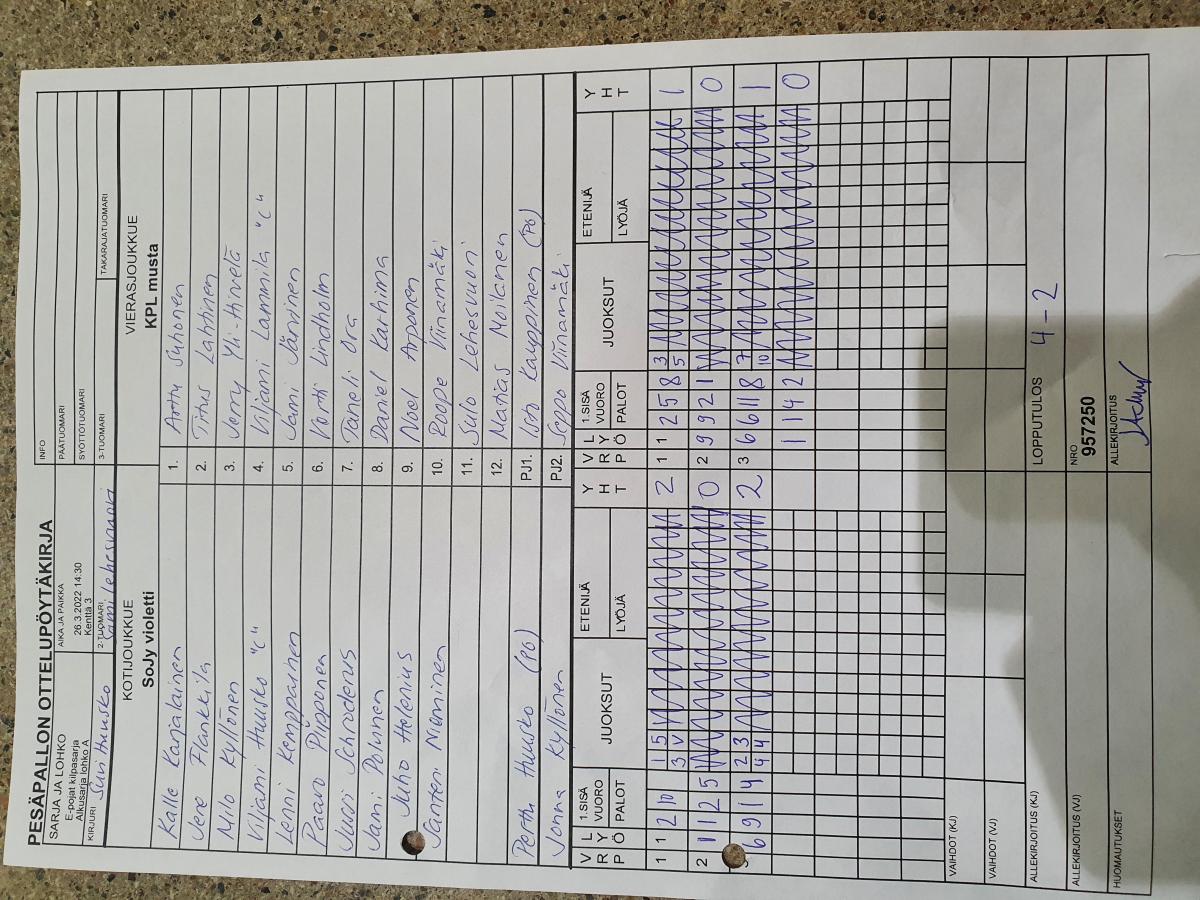 PESÄPALLON OTTELUPÖYTÄKIRJA
SARJA JA LOHKO
E-pojat kilpasarja
Alkusarja lohko A
AIKA JA PAIKKA
26.3.2022 14:30
Kenttä 3
INFO
PÄÄTUOMARI
SYÖTTÖTUOMARI
KIRJURI Suvi Huusko
2-TUOMARI Sami Lehesvuori
3-TUOMARI
TAKARAJATUOMARI
KOTIJOUKKUE
SoJy violetti
VIERASJOUKKUE
KPL musta
Kalle Karjalainen 1. Arttu Suhonen
Jere Flankkila 2. Titus Lahtinen
Milo Kyllönen 3. Jerry Yli-Hinvelä
Viljami Huusko "C" 4. Viljami Lammila "C"
Lenni Kemppainen 5. Jami Järvinen
Paavo Piipponen 6. Vertti Lindholm
Juuri Schroderus 7. Taneli Ora
Jami Polvinen 8. Daniel Karhima
Juho Helenius 9. Noel Arponen
Santeri Nieminen 10. Roope Viinamäki
11. Sulo Lehesvuori
12. Matias Moilanen
Perttu Huusko (PÖ) PJ1. Isto Kauppinen (PÖ)
Jonna Kyllönen PJ2. Seppo Viinamäki
V R P L Y Ö 1.SISÄ VUORO PALOT JUOKSUT ETENIJÄ LYÖJÄ Y H T
V R P L Y Ö 1.SISÄ VUORO PALOT JUOKSUT ETENIJÄ LYÖJÄ Y H T
1 1 2 10 1 5 2 1 1 2 5 8 3 1
3 V 5
2 1 1 2 5 0 2 9 9 2 1 0
3 6 9 1 4 2 3 2 3 6 6 11 8 7 1
4 4 10
1 1 4 2 0
VAIHDOT (KJ)
VAIHDOT (VJ)
ALLEKIRJOITUS (KJ)
LOPPUTULOS 4 - 2
ALLEKIRJOITUS (VJ)
NRO
957250
HUOMAUTUKSET
ALLEKIRJOITUS